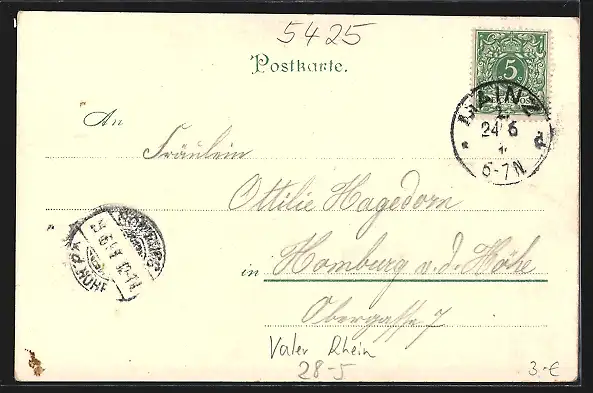 5425
Postkarte.
5
MAINZ
24 6
6-7N.
An
Fräulein
Ottilie Hagedorn
in Homburg v. d. Höhe
Obergasse 7
HOMBURG
HÖHE
Vater Rhein
28-5
3.-€